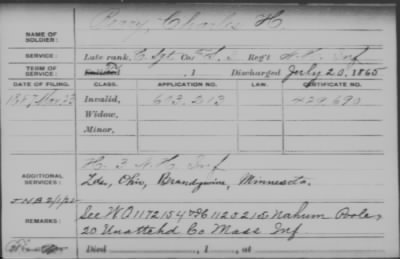 Perry, Charles H.
NAME OF SOLDIER:
SERVICE: Late rank, Sgt Co. Reg't N.H. Inf
TERM OF SERVICE: Enlisted , 1 Discharged July 20, 1865
DATE OF FILING. CLASS. APPLICATION NO. LAW. CERTIFICATE NO.
1887 Nov 23 Invalid, 633.213 429.690
Widow,
Minor,
H. 3 N.H. Inf
ADDITIONAL SERVICES: Ohio, Brandywine, Minnesota.
REMARKS: See WO 1172154 Nahum Poole,
20 Unattchd Co Mass Inf
Died , 1 , at